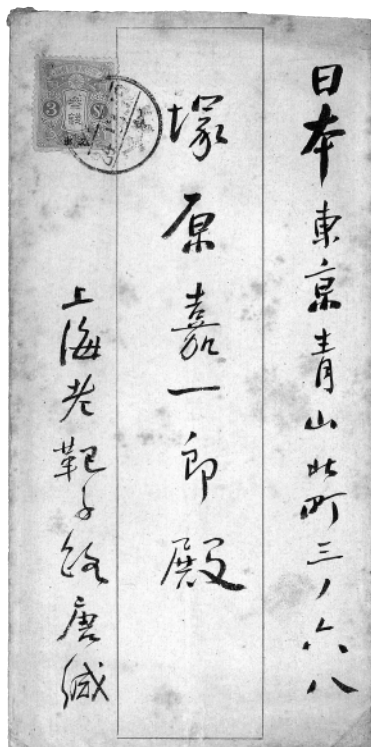 日本東京青山北町三ノ六八
塚原嘉一郎殿
上海老靶子路唐緘